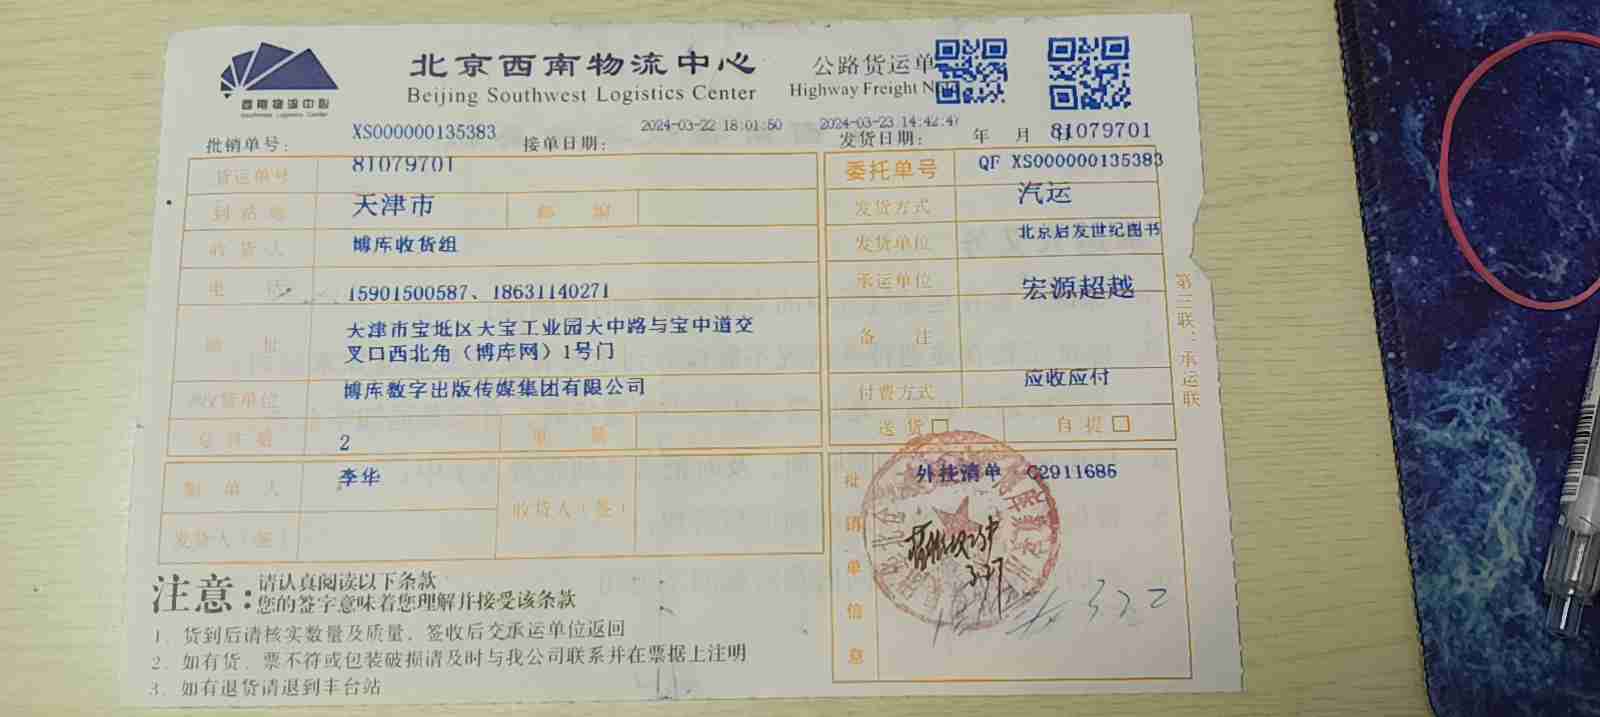 北京西南物流中心 公路货运单
Beijing Southwest Logistics Center Highway Freight
西南物流中心
Southwest Logistics Center
批销单号： XS000000135383 接单日期： 2024-03-22 18:01:50 发货日期： 2024-03-23 14:42:47 年 月 日 81079701
货运单号 81079701 委托单号 QF XS000000135383
到站 天津市 邮 编 发货方式 汽运
收货人 博库收货组 发货单位 北京启发世纪图书
电 话 15901500587、18631140271 承运单位 宏源超越
地 址 天津市宝坻区天宝工业园天中路与宝中道交
叉口西北角（博库网）1号门 备 注
收货单位 博库数字出版传媒集团有限公司 付费方式 应收应付
总件数 2 重 量 送货 自提
制单人 李华 收货人（签） 批销单信息 外挂清单 C2911685
发货人（签）
3.27
3.22
第三联：承运联
注意： 请认真阅读以下条款
您的签字意味着您理解并接受该条款
1. 货到后请核实数量及质量，签收后交承运单位返回
2. 如有货、票不符或包装破损请及时与我公司联系并在票据上注明
3. 如有退货请退到丰台站